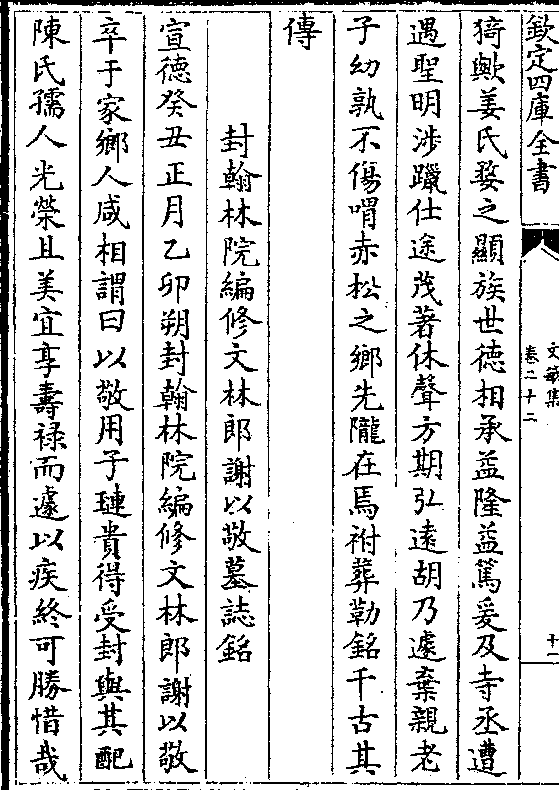 欽定四庫全書
文敏集
卷二十二
十一
猗歟姜氏婺之顯族世徳相承益隆益篤爰及寺丞遭
遇聖明涉躐仕途茂著休聲方期弘逺胡乃遽棄親老
子幼孰不傷喟赤松之鄉先隴在焉祔葬勒銘千古其
傳
封翰林院編修文林郎謝以敬墓誌銘
宣徳癸丑正月乙卯朔封翰林院編修文林郎謝以敬
卒于家鄉人咸相謂曰以敬用子璉貴得受封與其配
陳氏孺人光榮且美宜享壽禄而遽以疾終可勝惜哉